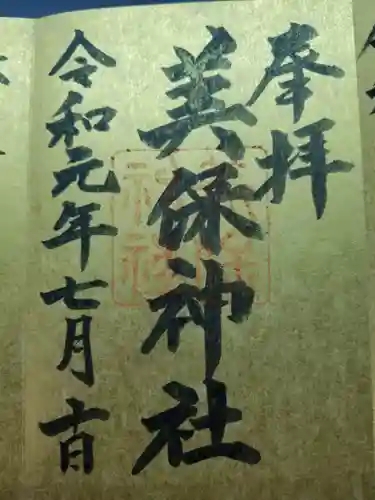 奉拝
美保神社
令和元年七月十日